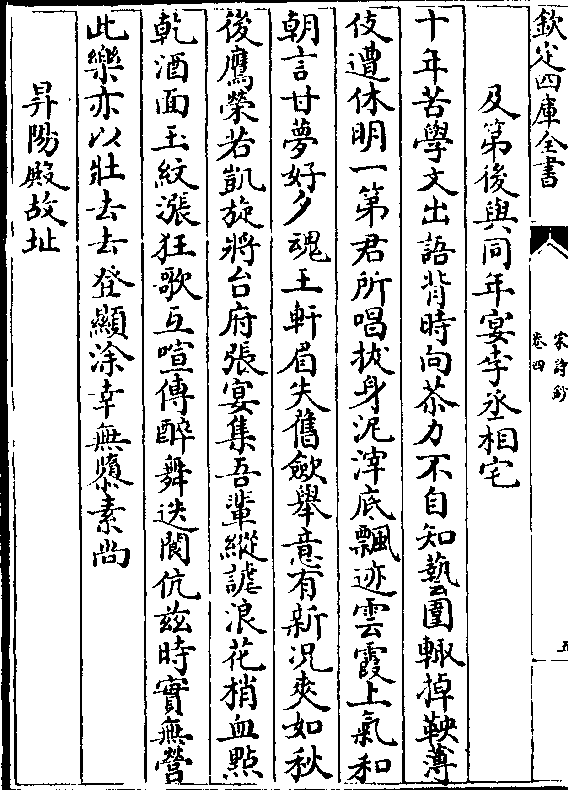 欽定四庫全書
宋詩鈔
卷四
五
及第後與同年宴李丞相宅
十年苦學文出語背時向苶力不自知藝圃輙掉鞅薄
伎遭休明一第君所唱拔身泥滓底飄迹雲霞上氣和
朝言甘夢好夕魂王軒眉失舊斂舉意有新况爽如秋
後鷹榮若凱旋將台府張宴集吾輩縱謔浪花梢血點
乾酒面玉紋漲狂歌互喧傳醉舞迭閬伉兹時實無營
此樂亦以壯去去登顯涂幸無隳素尚
昇陽殿故址